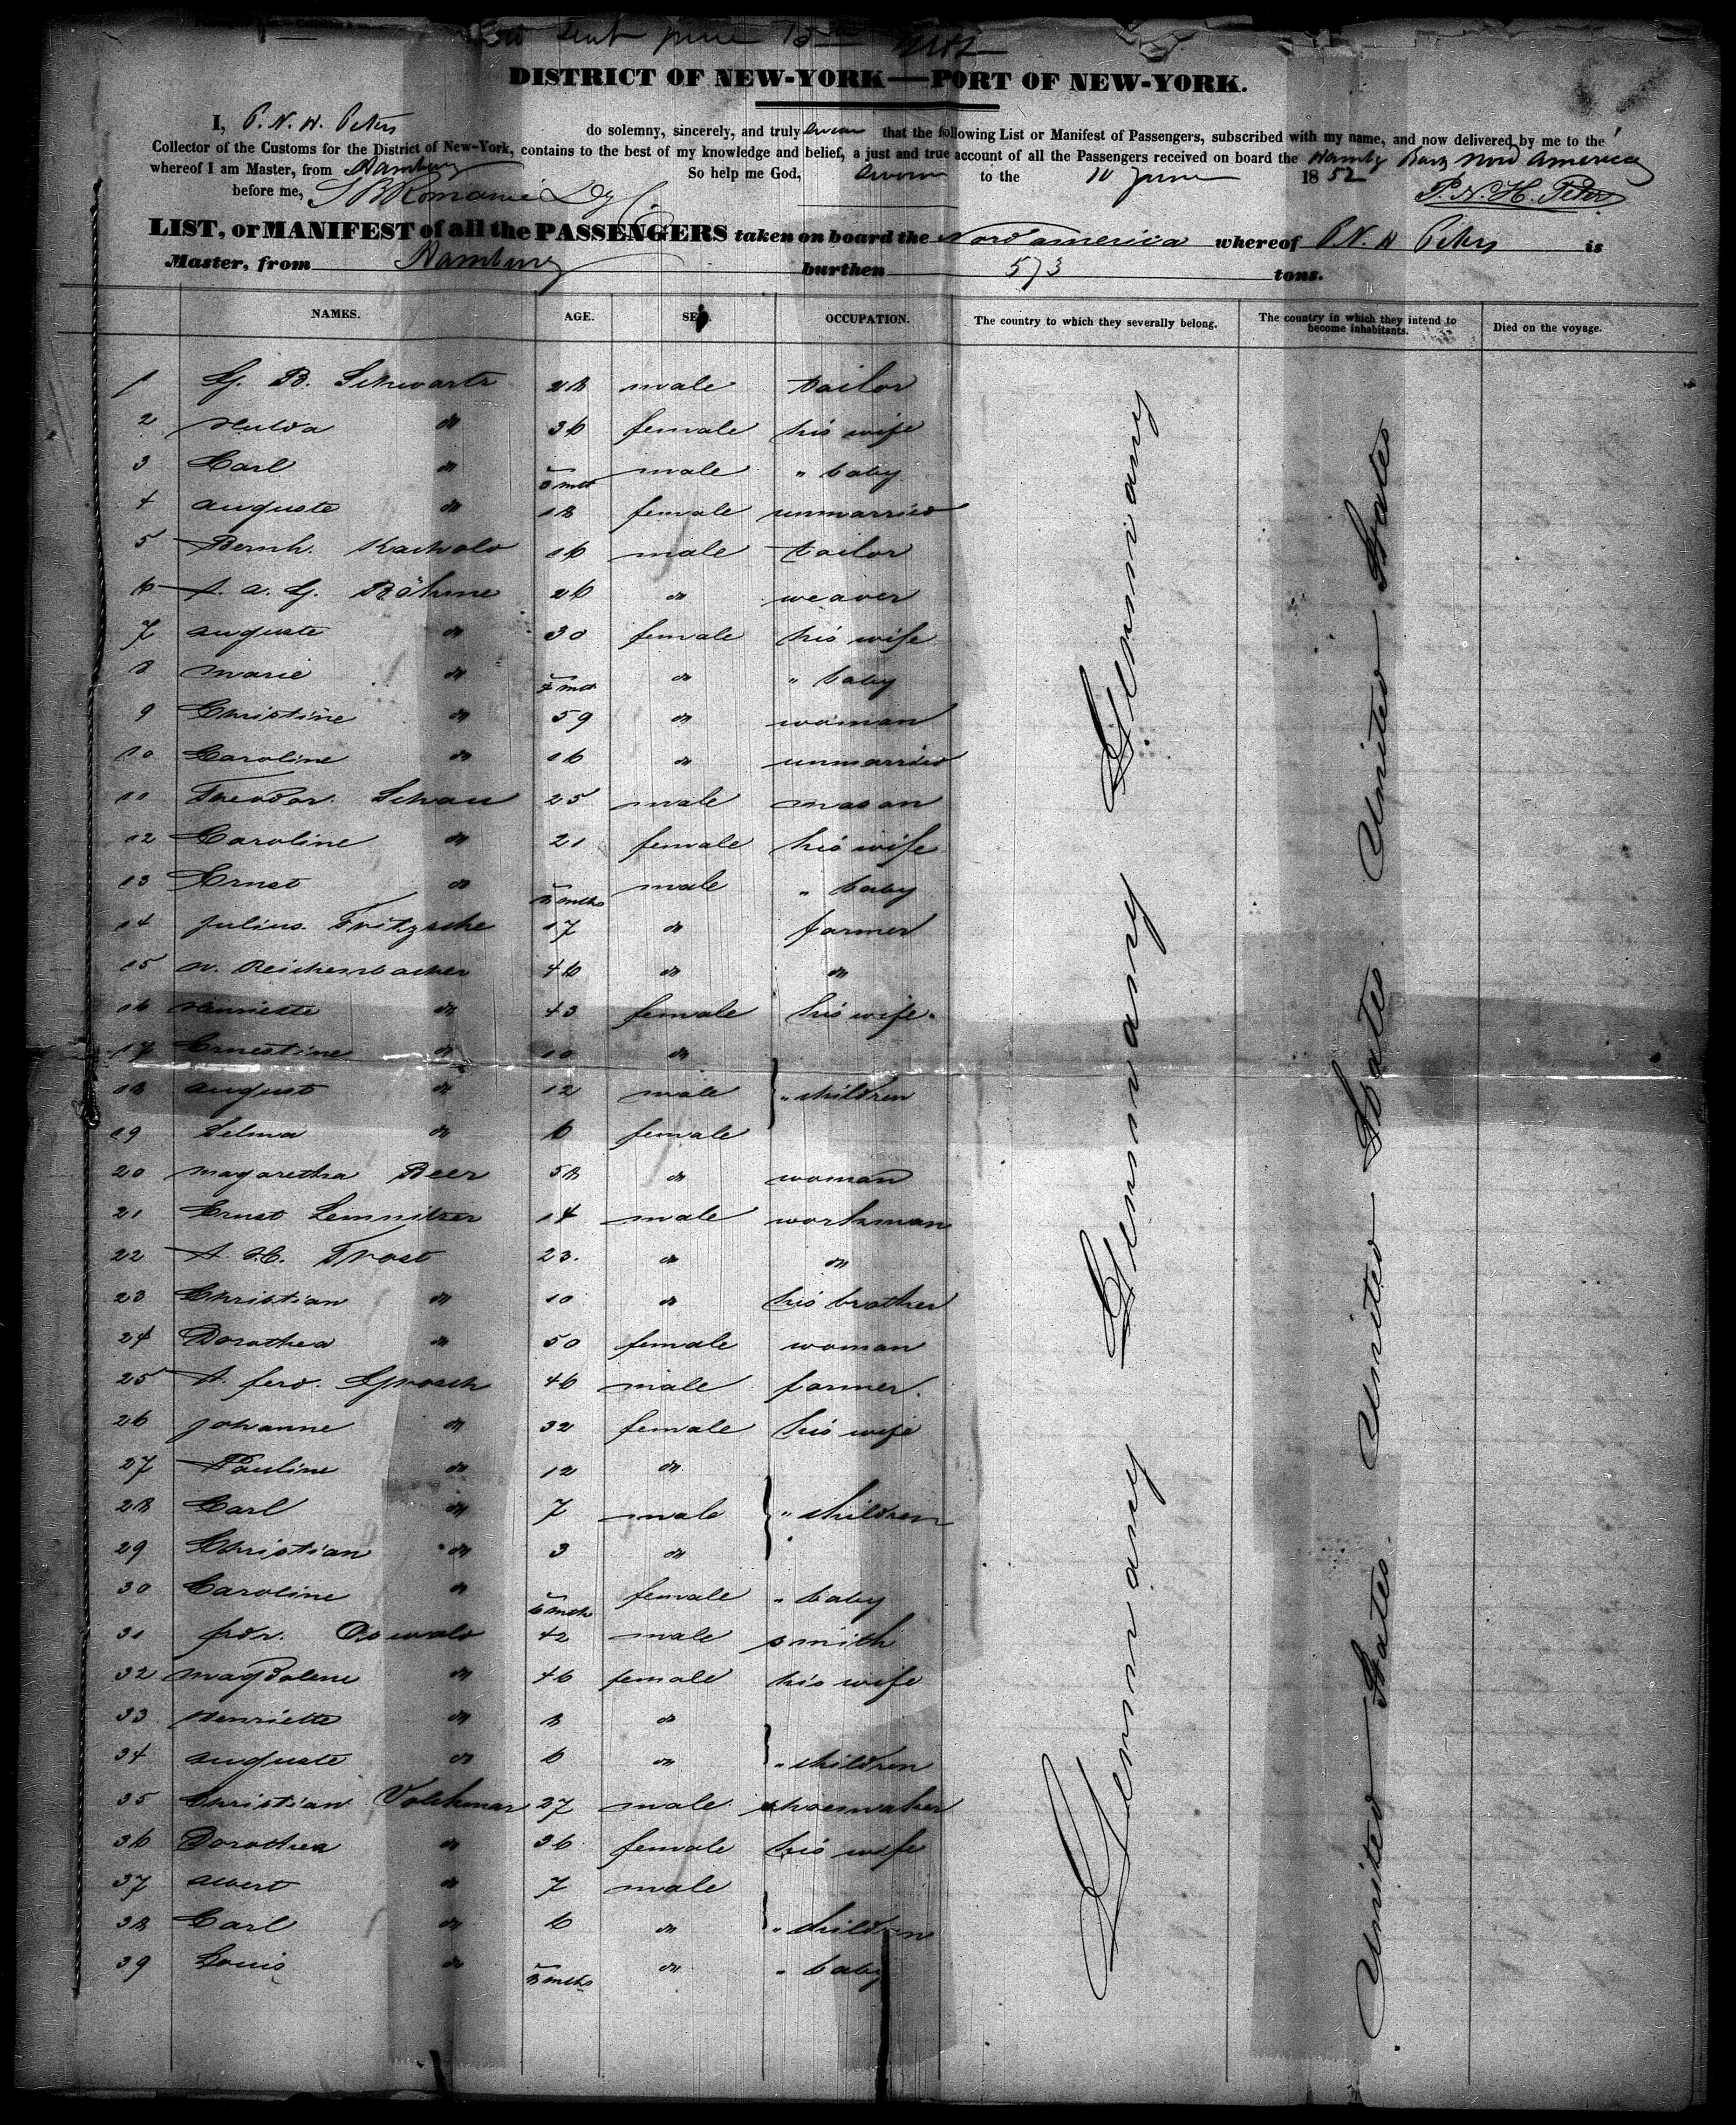 sent June 15
DISTRICT OF NEW-YORK—PORT OF NEW-YORK.
I, P. N. H. Peters do solemny, sincerely, and truly swear that the following List or Manifest of Passengers, subscribed with my name, and now delivered by me to the
Collector of the Customs for the District of New-York, contains to the best of my knowledge and belief, a just and true account of all the Passengers received on board the Hambg Bark Nord America
whereof I am Master, from Hamburg So help me God, Sworn to the 10 June 1852
before me, P. N. H. Peters
LIST, or MANIFEST of all the PASSENGERS taken on board the Nord america whereof P. N. H Peters is
Master, from Hamburg burthen 573 tons.
NAMES. AGE. SEX. OCCUPATION. The country to which they severally belong. The country in which they intend to become inhabitants. Died on the voyage.
1 G. B. Schwartz 28 male tailor
2 Hulda do 36 female his wife
3 Carl do male " baby
4 auguste do 18 female unmarried
5 Bernh. 16 male tailor
6 F. A. G. Böhme 26 do weaver
7 auguste do 30 female his wife
8 marie do 4 mth do " baby
9 Christine do 59 do woman
10 Caroline do 16 do unmarried
11 Theodor. Schau 25 male mason
12 Caroline do 21 female his wife
13 Ernst do 8 mths male " baby
14 Julius Fritzsche 17 do farmer
15 Reichenbacher 46 do do
16 Henriette do 43 female his wife.
17 Ernestine do 10 do
18 august do 12 male " children
19 Selma do 6 female
20 Magaretha Beer 58 do woman
21 Ernst Lemnitzer 14 male workman
22 Frost 23. do do
23 Christian do 10 do his brother
24 Dorothea do 50 female woman
25 F. ferd. Grosch 46 male farmer.
26 Johanne do 32 female his wife
27 Pauline do 12 do
28 Carl do 7 male " children
29 Christian do 3 do
30 Caroline do 6 mth female " baby
31 frdr. Oswald 42 male smith
32 Magdalene do 46 female his wife
33 Henriette do 8 do
34 auguste do 6 do " children
35 Christian Volkmar 27 male shoemaker
36 Dorothea do 36 female his wife
37 Albert do 7 male
38 Carl do 6 do " children
39 Louis do 8 mths do " baby
Germany Germany Germany Germany
United States United States United States United States